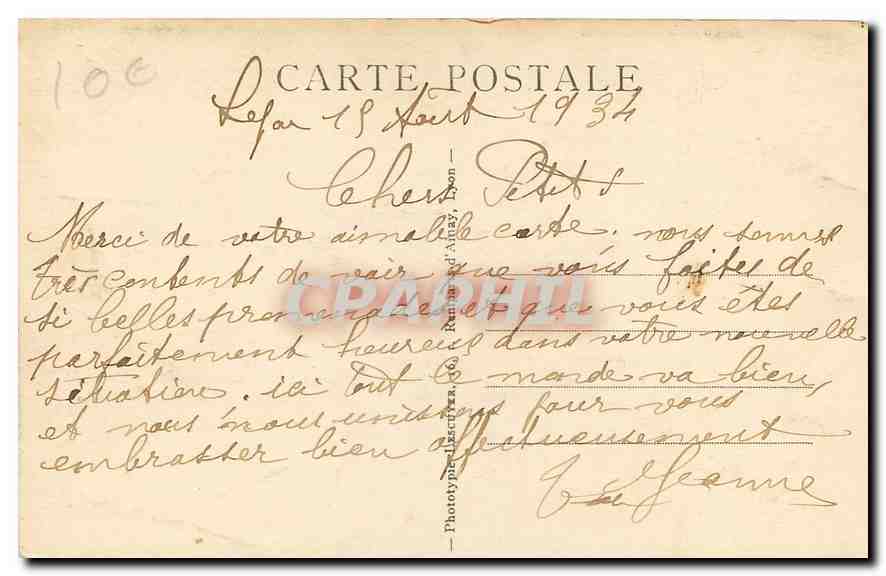 10€
CARTE POSTALE
15 Août 1934
Chers Petits
Merci de votre aimable carte. nous sommes
très contents de voir que vous faites de
si belles promenades et que vous êtes
parfaitement heureux dans votre nouvelle
situation. ici tout le monde va bien,
et nous nous unissons pour vous
embrasser bien affectueusement
Jeanne
— Phototypie LESCUYER, Rempart d'Ainay, Lyon —
CPAPHIL